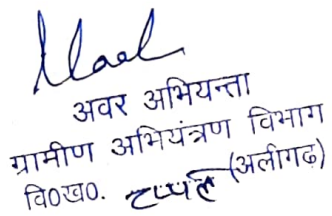 अवर अभियन्ता
ग्रामीण अभियंत्रण विभाग
वि०ख०. टप्पल (अलीगढ़)